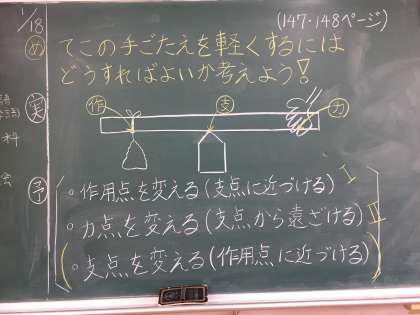 1/18
(147・148ページ)
め てこの手ごたえを軽くするには
どうすればよいか考えよう!
実
作 支 力
科
会
予
・作用点を変える(支点に近づける) I
・力点を変える(支点から遠ざける) II
(・支点を変える(作用点に近づける))